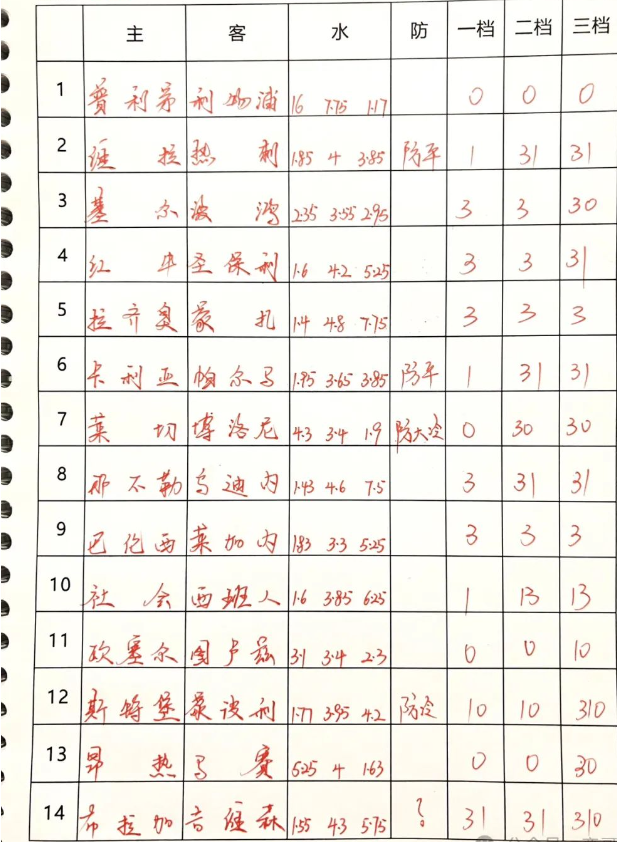 主 客 水 防 一档 二档 三档
1 赛利弗 利物浦 16 7.75 1.17 0 0 0
2 维拉 热刺 1.85 4 3.85 防平 1 31 31
3 塞尔 波鸿 2.35 3.55 2.95 3 3 30
4 红牛 圣保利 1.6 4.2 5.25 3 3 31
5 拉齐奥 蒙扎 1.4 4.8 7.75 3 3 3
6 卡利亚 帕尔马 1.95 3.65 3.85 防平 1 31 31
7 莱切 博洛尼 4.3 3.4 1.9 防大冷 0 30 30
8 那不勒 乌迪内 1.43 4.6 7.5 3 31 31
9 巴伦西 莱加内 1.83 3.3 5.25 3 3 3
10 社会 西班人 1.6 3.85 6.25 1 13 13
11 欧塞尔 图卢兹 3.1 3.4 2.3 0 0 10
12 斯特堡 蒙彼利 1.77 3.95 4.2 防冷 10 10 310
13 昂热 马赛 5.25 4 1.63 0 0 30
14 布拉加 吉维森 1.55 4.3 5.75 ? 31 31 310